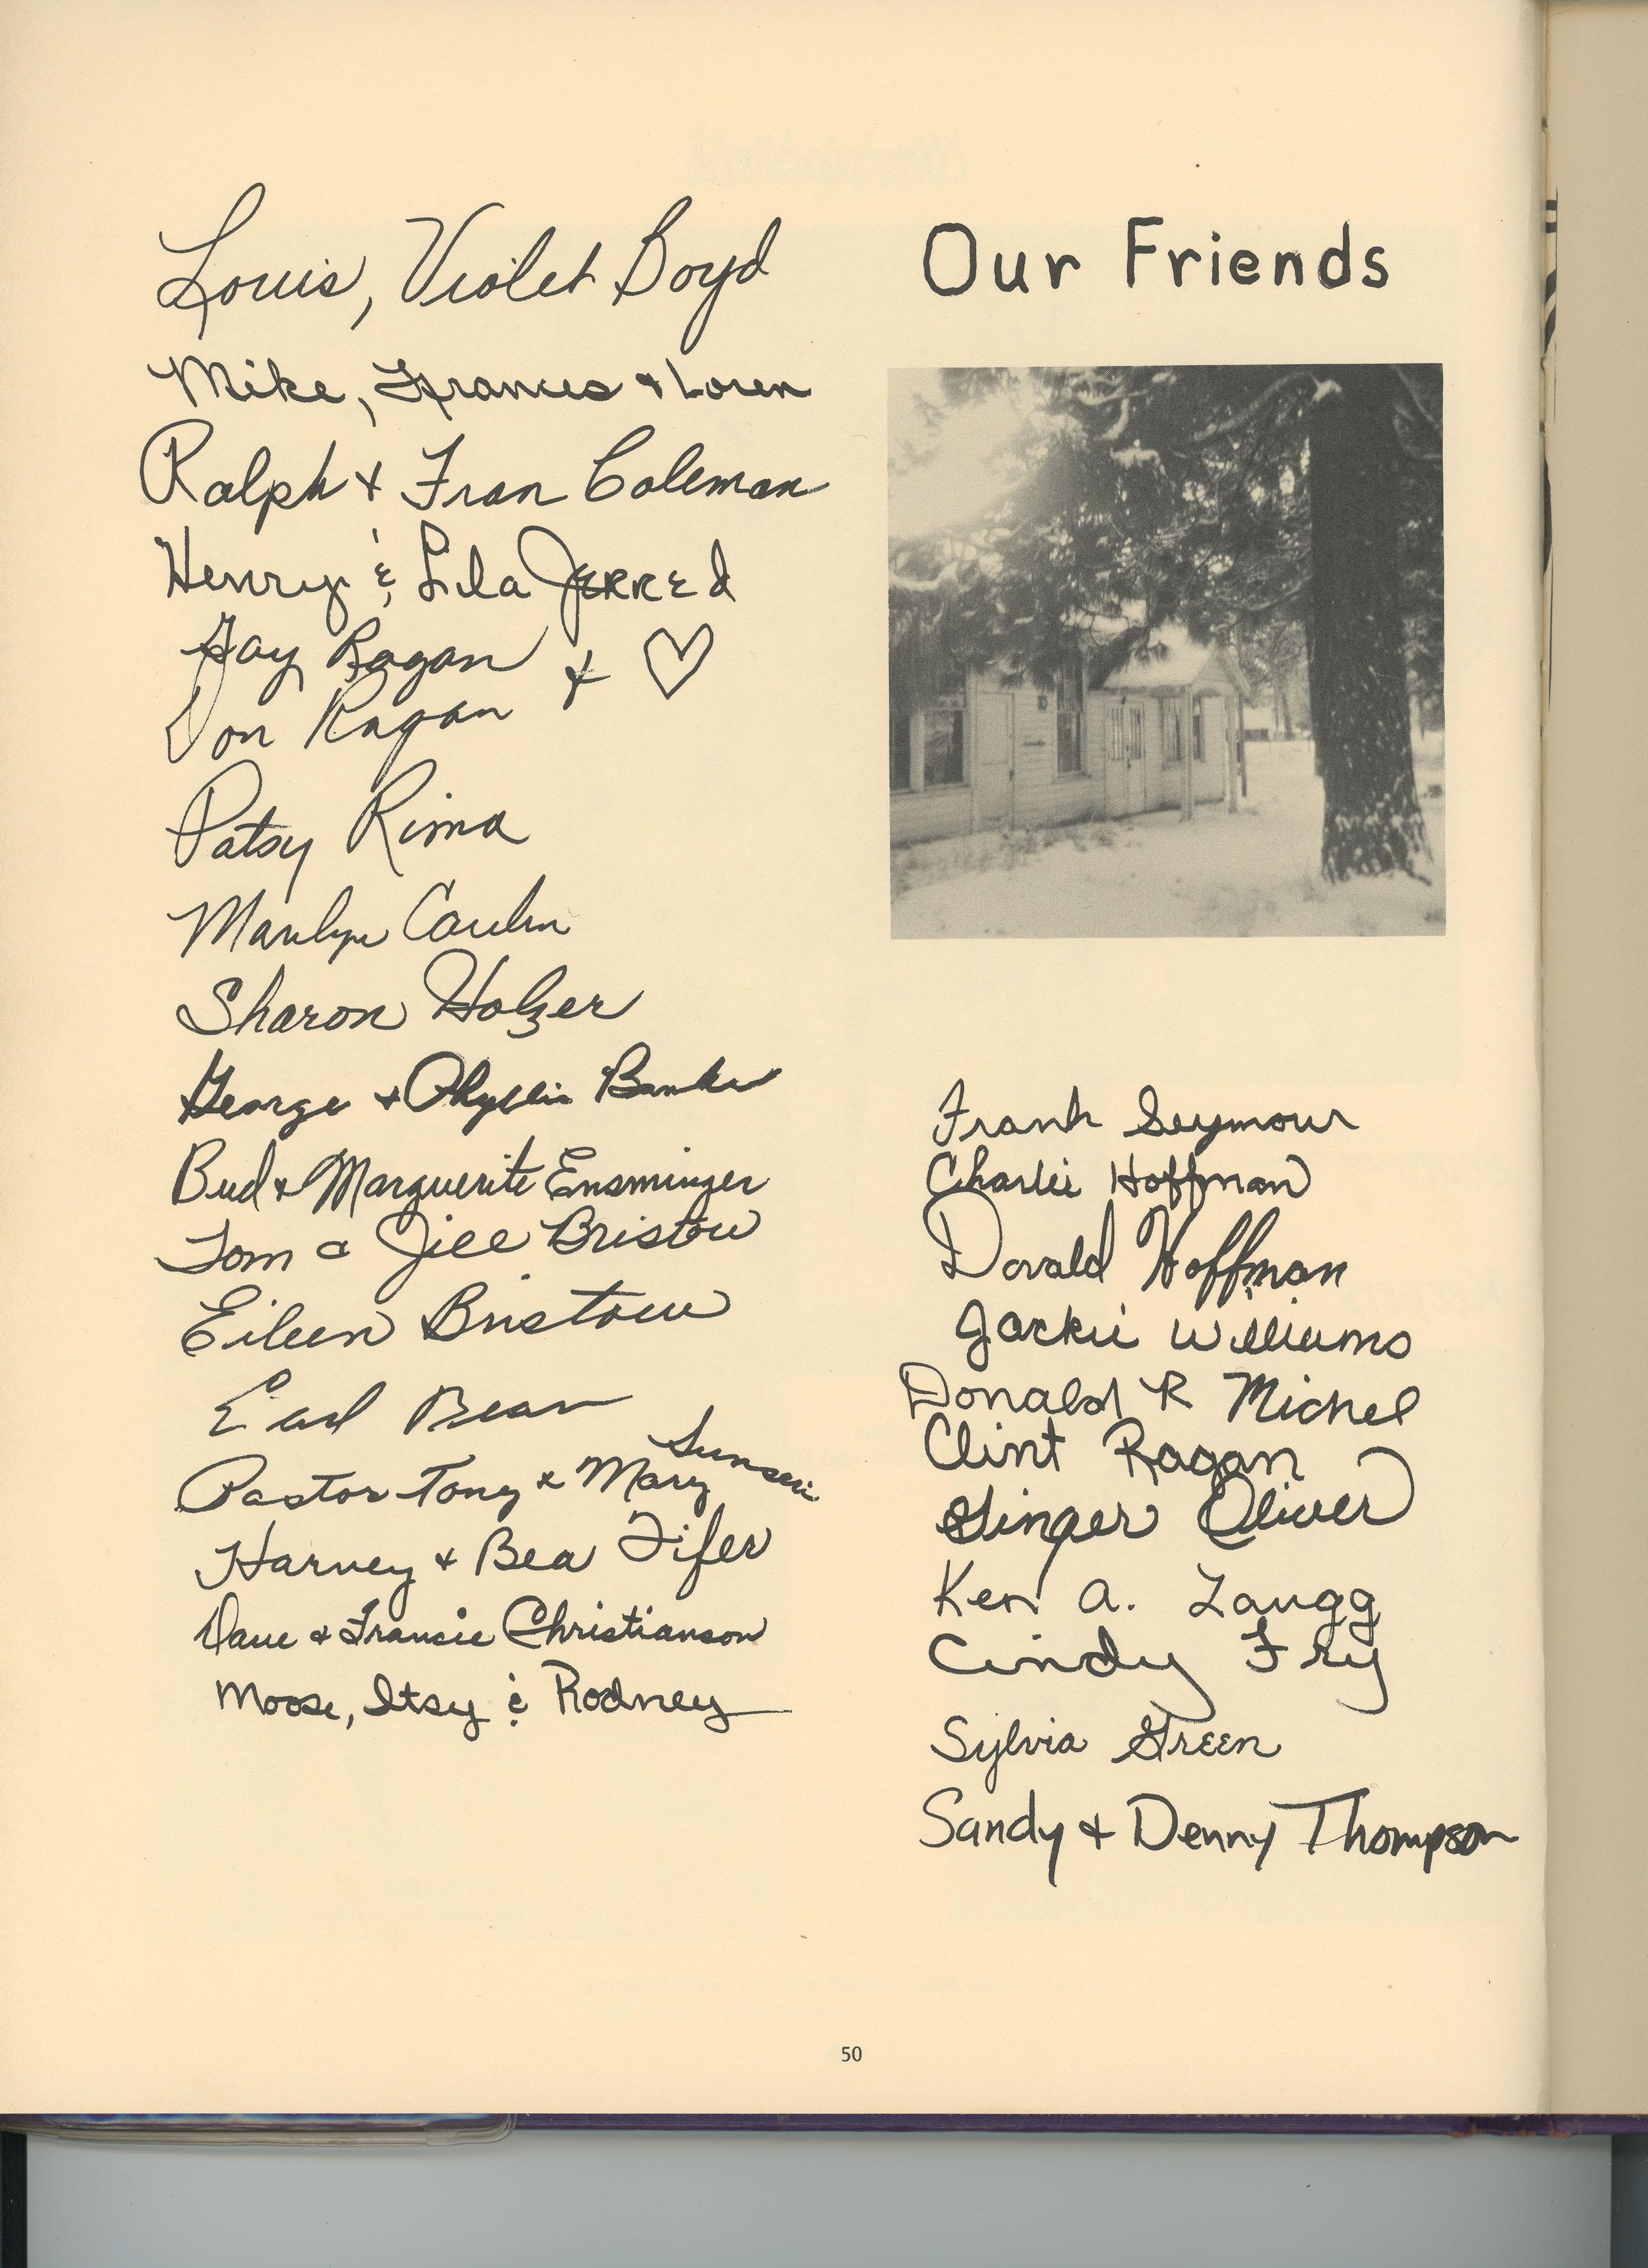 Louis, Violet Boyd
Mike, Frances & Loren
Ralph & Fran Coleman
Henry & Lila Jerred
Gay Ragan
& ♡
Don Ragan
Patsy Rima
Marilyn
Sharon Holzer
George & Phyllis
Bud & Marguerite Ensminger
Tom & Jill Bristow
Eileen Bristow
Earl Bean
Pastor Tony & Mary
Harvey & Bea Fifer
Dave & Francie Christianson
Moose, Itsy & Rodney
Our Friends
Frank Seymour
Charlie Hoffman
Donald Hoffman
Jackie Williams
Donald R Michel
Clint Ragan
Ginger Oliver
Ken A. Zaugg
Cindy Fry
Sylvia Green
Sandy & Denny Thompson
50